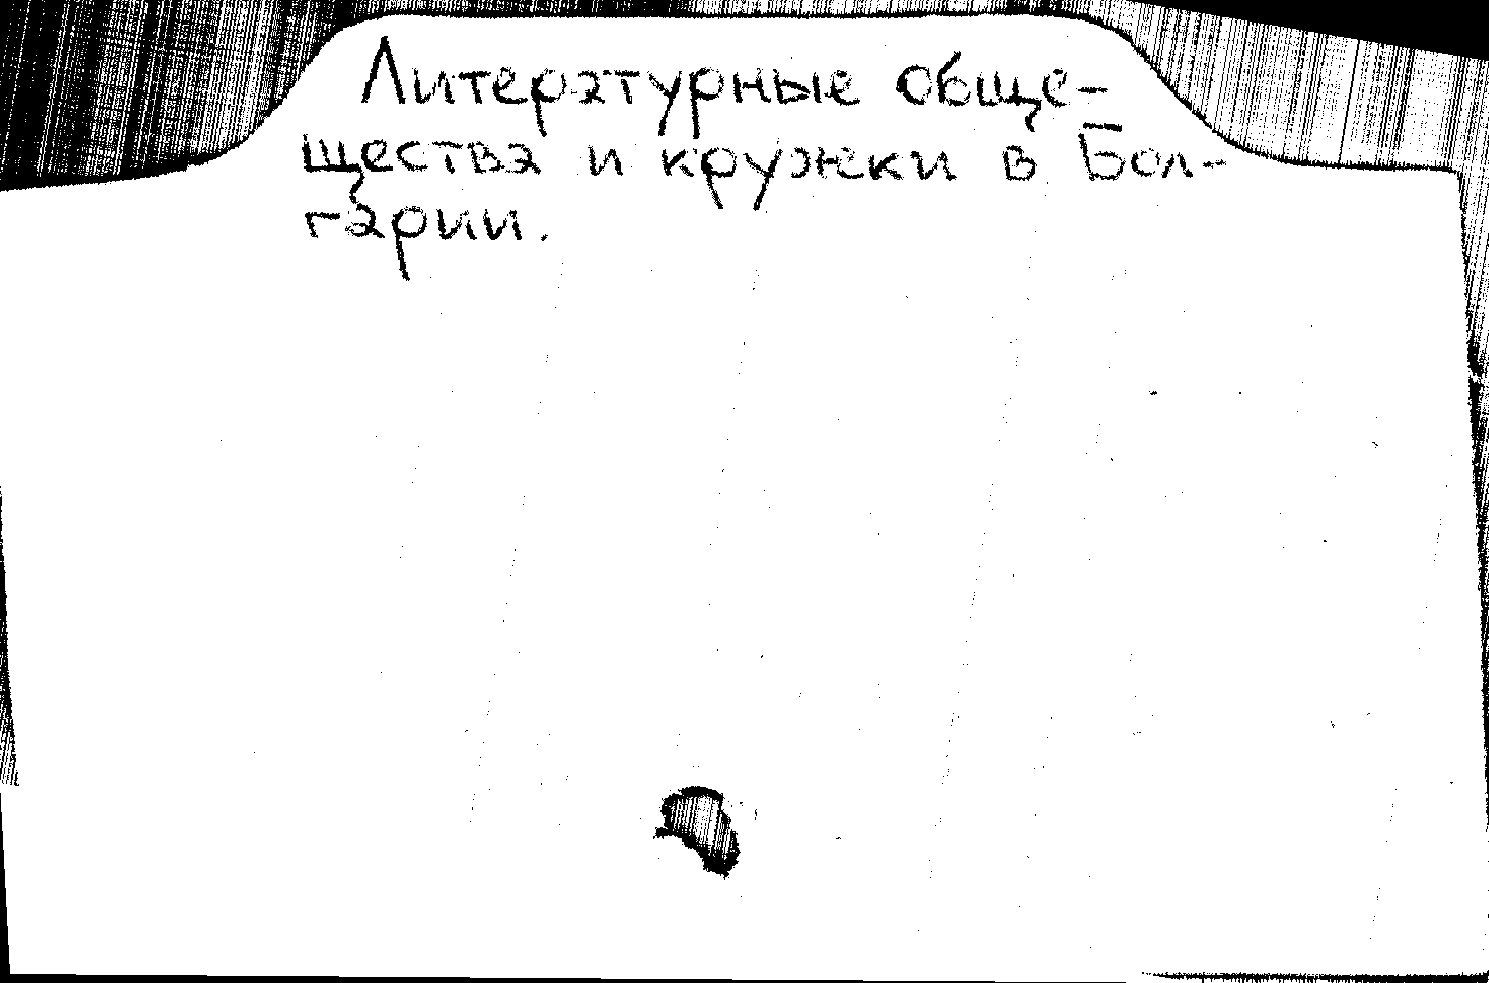 Литературные обще-
щества и кружки в Бол-
гарии.